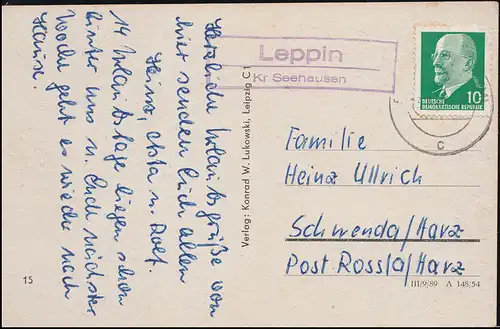 Herzliche Urlaubsgrüße von
hier senden Euch allen
Heinz, Asta u. Rolf.
14 Urlaubstage liegen schon
hinter uns u. Ende nächster
Woche geht es wieder nach
Hause.
15
Verlag: Konrad W. Lukowski, Leipzig C 1
Leppin
Kr Seehausen
10
DEUTSCHE
DEMOKRATISCHE REPUBLIK
c
Familie
Heinz Ullrich
Schwenda/Harz
Post Rossla/Harz
III/9/89 A 148/54